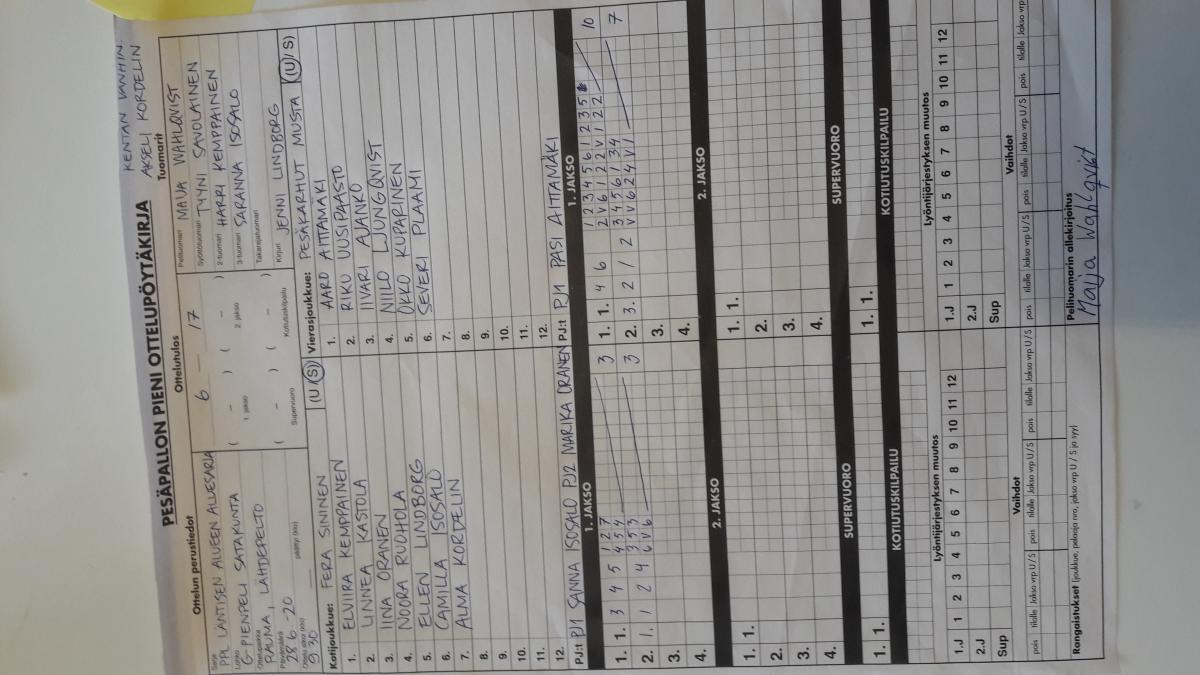 KENTÄN VANHIN:
AKSELI KORDELIN
PESÄPALLON PIENI OTTELUPÖYTÄKIRJA
Ottelun perustiedot
Sarja
PPL LÄNTISEN ALUEEN ALUESARJA
Lohko
G-PIENPELI SATAKUNTA
Ottelupaikka
RAUMA, LÄHDEPELTO
Päivämäärä
28.6 -20
Ottelu alkoi (klo)
9.30
päättyi (klo)
Ottelutulos
6 — 17
( – ) ( – )
1. jakso 2. jakso
( – ) ( – )
Supervuoro Kotiutuskilpailu
Tuomarit
Pelituomari MAIJA WAHLQVIST
Syöttötuomari TYYNI SAVOLAINEN
2-tuomari HARRI KEMPPAINEN
3-tuomari SARANNA ISOSALO
Takarajatuomari
Kirjuri JENNI LINDBORG
Kotijoukkue: FERA SININEN (U/S)
1. ELVIIRA KEMPPAINEN
2. LINNEA KASTOLA
3. IINA ORANEN
4. NOORA RUOHOLA
5. ELLEN LINDBORG
6. CAMILLA ISOSALO
7. ALMA KORDELIN
8.
9.
10.
11.
12.
PJ:t PJ1 SANNA ISOSALO PJ2 MARIKA ORANEN
Vierasjoukkue: PESÄKARHUT MUSTA (U/S)
1. AARO AITTAMÄKI
2. RIKU UUSIPAASTO
3. IIVARI AJANKO
4. NIILO LJUNGQVIST
5. OKKO KUPARINEN
6. SEVERI PLAAMI
7.
8.
9.
10.
11.
12.
PJ:t PJ1 PASI AITTAMÄKI
1. JAKSO
1. 1. 3 4 5 1 2 7 3
4 5 4
2. 1. 1 2 4 3 5 3 3
6 V 6
3.
4.
2. JAKSO
1. 1.
2.
3.
4.
SUPERVUORO
1. 1.
KOTIUTUSKILPAILU
1. JAKSO
1. 1. 4 6 1 2 3 4 5 6 1 2 3 5 10
2 V 6 1 2 2 V 1 2 2
2. 3. 2 / 2 3 4 5 6 1 3 4 7
V V 6 2 4 V 1
3.
4.
2. JAKSO
1. 1.
2.
3.
4.
SUPERVUORO
1. 1.
KOTIUTUSKILPAILU
Lyöntijärjestyksen muutos
1.J 1 2 3 4 5 6 7 8 9 10 11 12
2.J
Sup
Vaihdot
pois tilalle Jakso vrp U/S pois tilalle Jakso vrp U/S pois tilalle Jakso vrp U/S
Lyöntijärjestyksen muutos
1.J 1 2 3 4 5 6 7 8 9 10 11 12
2.J
Sup
Vaihdot
pois tilalle Jakso vrp U/S pois tilalle Jakso vrp U/S pois tilalle Jakso vrp
Rangaistukset (joukkue, pelaaja nro, jakso vrp U / S ja syy)
Pelituomarin allekirjoitus
Maija Wahlqvist